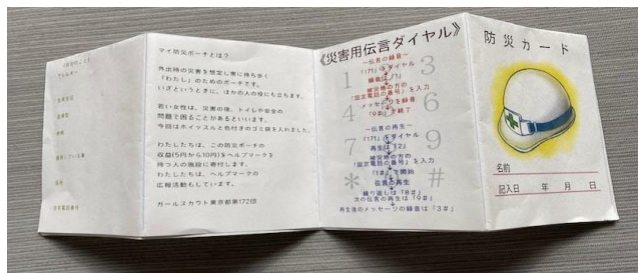 マイ防災ポーチとは？
外出時の災害を想定し常に持ち歩く
「わたし」のためのポーチです。
いざというときに、ほかの人の役にも立ちます。
若い女性は、災害の後、トイレや安全の
問題で困ることがあるといいます。
今回はホイッスルと色付きのゴミ袋を入れました。
わたしたちは、この防災ポーチの
収益(5円から10円)をヘルプマークを
待つ人の施設に寄付します。
わたしたちは、ヘルプマークの
広報活動もしています。
ガールスカウト東京都第172団
《災害用伝言ダイヤル》
1
3
4
6
7
9
*
#
～伝言の録音～
「171」をダイヤル
録音は「1」
被災地の方の
「固定電話の番号」を入力
メッセージを録音
「9#」で終了
～伝言の再生～
「171」をダイヤル
再生は「2」
被災地の方の
「固定電話の番号」を入力
「1#」で開始
伝言の再生
繰り返しは「8#」
次の伝言の再生は「9#」
再生後のメッセージの録音は「3#」
防災カード
名前
記入日 年 月 日